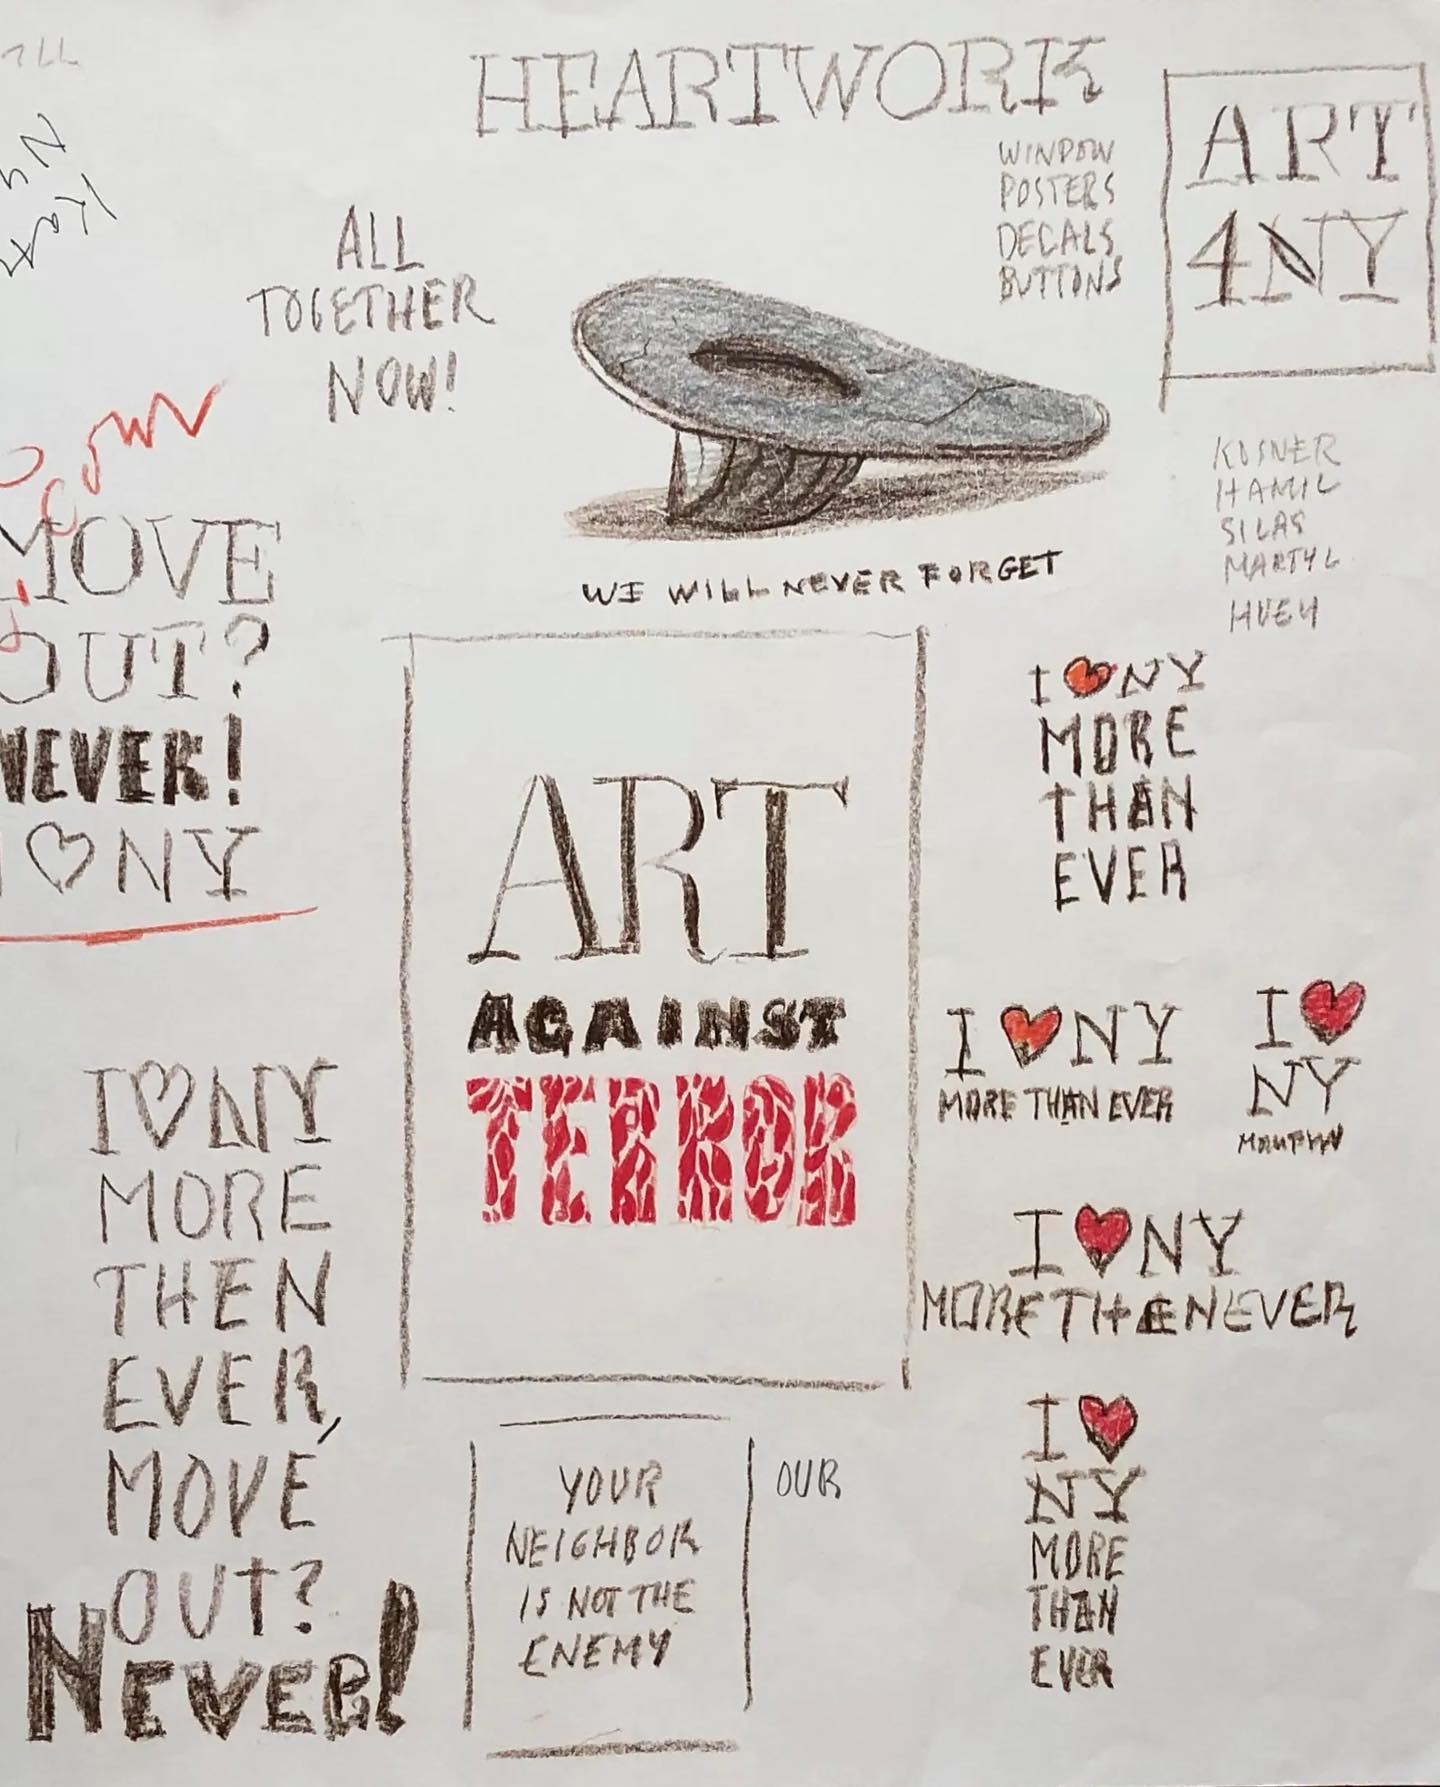 HEARTWORK
WINDOW
POSTERS
DECALS
BUTTONS
ART
4NY
ALL
TOGETHER
NOW!
KOSNER
HAMIL
SILAS
MARTYL
HUEY
WE WILL NEVER FORGET
MOVE
OUT?
NEVER!
I ♡ NY
ART
AGAINST
TERROR
I ❤ NY
MORE
THAN
EVER
I ❤ NY
MORE THAN EVER
I ❤
NY
I ❤ NY
MORE THAN EVER
I ❤
NY
MORE
THAN
EVER
I ♡ NY
MORE
THEN
EVER,
MOVE
OUT?
NEVER!
YOUR
NEIGHBOR
IS NOT THE
ENEMY
OUR